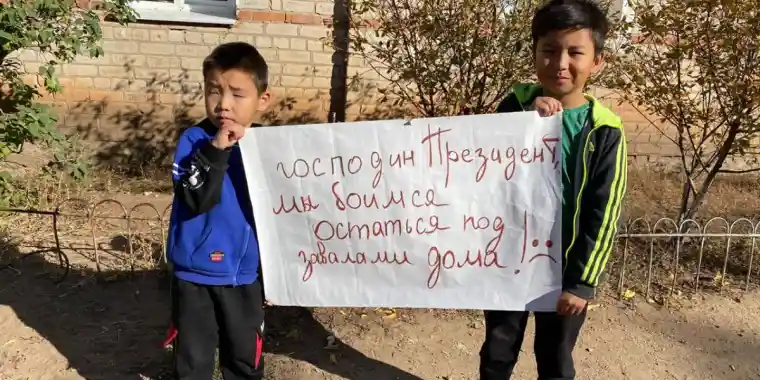 господин Президент,
мы боимся
остаться под
завалами дома!